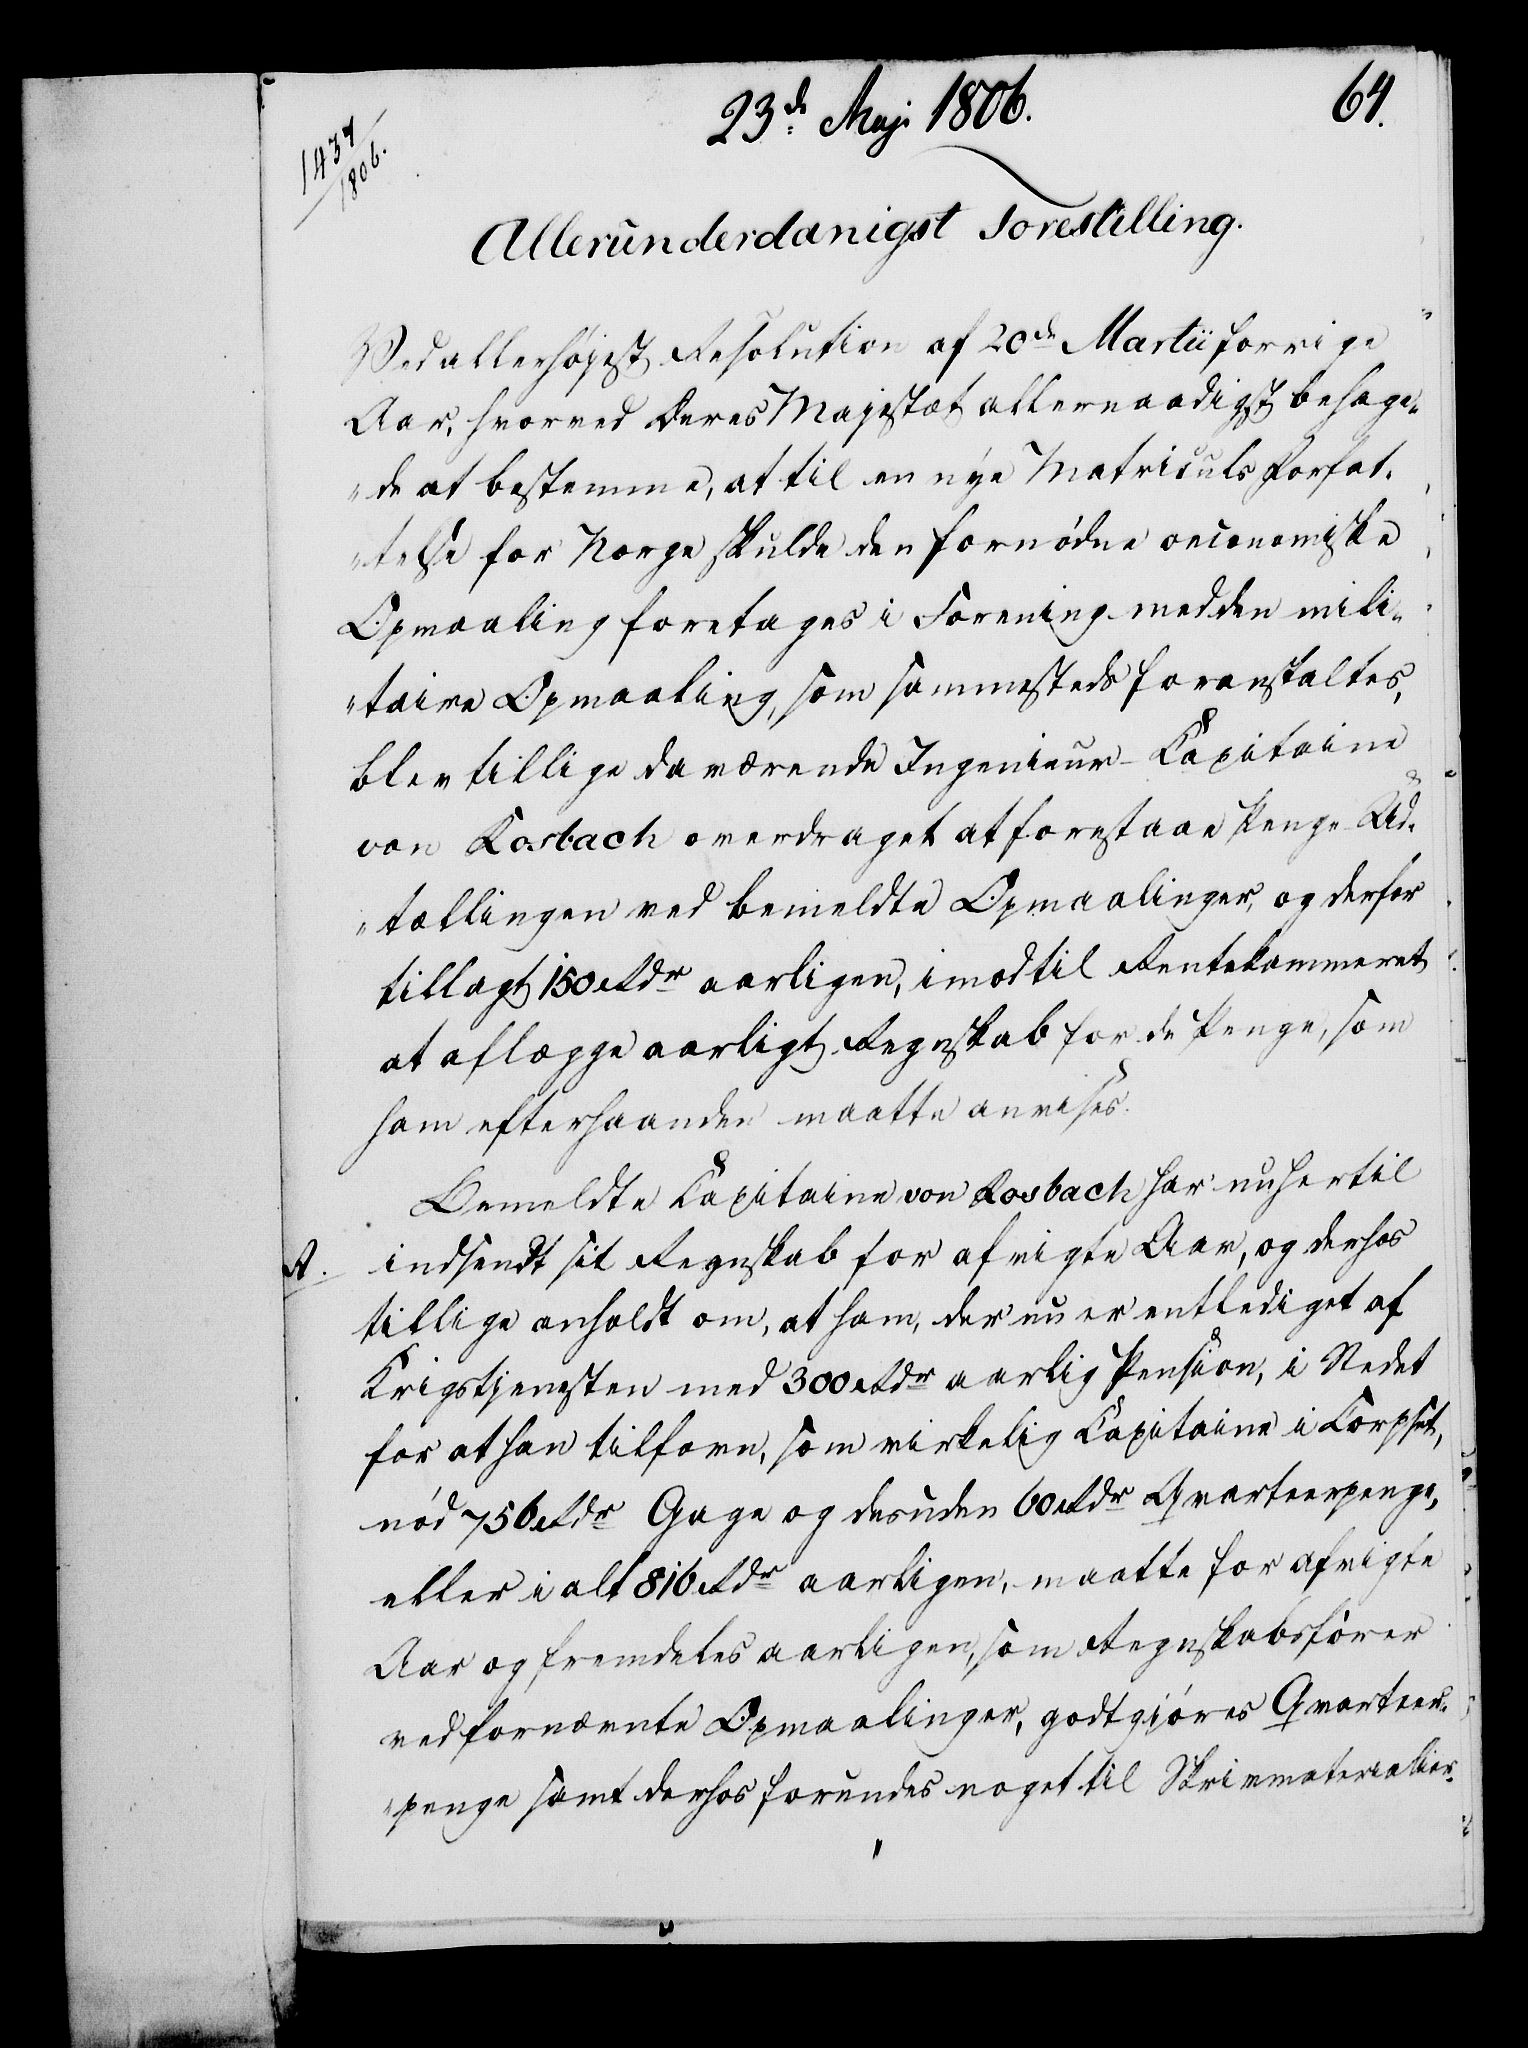 23de Maji 1806.
64.
1437/1806.
Allerunderdanigst Forestilling.
Ved allerhøjest Resolution af 20de Martii forrige
Aar, hvorved Deres Majestæt allernaadigst behage„
„de at bestemme, at til en nye Matriculs Forfat„
„telse for Norge skulde den fornødne oeconomiske
Opmaaling foretages i Forening med den mili„
„taire Opmaaling, som sammesteds foranstaltes,
blev tillige daværende Ingenieur-Capitaine
von Rosbach overdraget at forestaae Penge-Ud„
„tællingen ved bemeldte Opmaalinger, og derfor
tillagt 150 Rdr aarligen, imod til Rentekammeret
at aflægge aarligt Regnskab for de Penge, som
ham efterhaanden maatte anvises.
Bemeldte Capitaine von Rosbach har nu hertil
A. indsendt sit Regnskab for afvigte Aar, og derhos
tillige anholdt om, at ham, der nu er entlediget af
Krigstjenesten med 300 Rdr aarlig Pension, i Stedet
for at han tilforn, som virkelig Capitaine i Corpset,
nød 756 Rdr Gage og desuden 60 Rdr Qvarteerpenge,
eller i alt 816 Rdr aarligen, maatte for afvigte
Aar og fremdeles aarligen, som Regnskabsfører
ved fornævnte Opmaalinger, godtgjøres Qvarteer„
„penge samt derhos forundes noget til Skrivmaterialier.